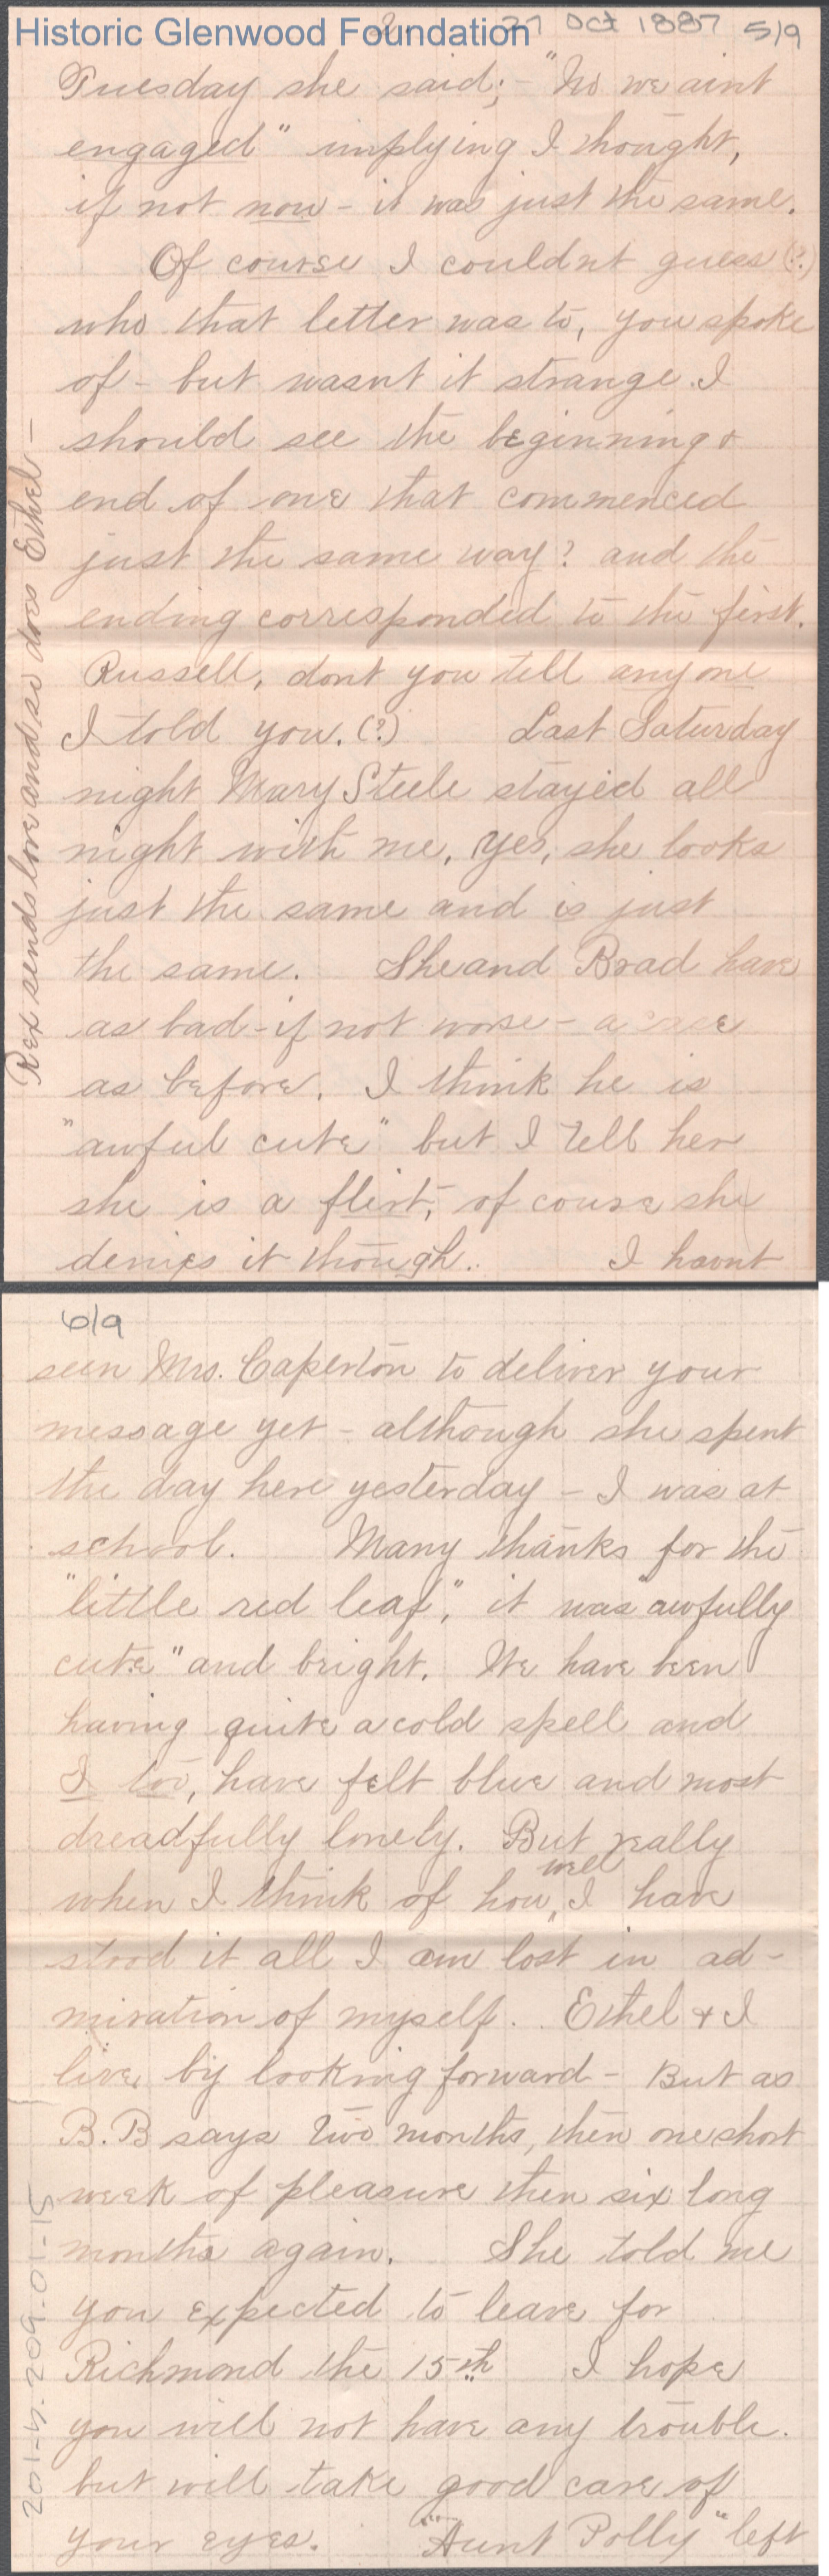 Historic Glenwood Foundation
27 Oct 1887 5/9
Tuesday she said; - "No we aint
engaged" implying I thought,
if not now - it was just the same.
Of course I couldnt guess (?)
who that letter was to, you spoke
of - but wasnt it strange I
should see the beginning &
end of one that commenced
just the same way? and the
ending corresponded to the first.
Russell, dont you tell anyone
I told you. (?) Last Saturday
night Mary Steele stayed all
night with me, yes, she looks
just the same and is just
the same. She and Brad have
as bad - if not worse - a case
as before. I think he is
"awful cute" but I tell her
she is a flirt, of course she
denies it though.. I havnt
Rex sends love and so does Ethel -
6/9
seen Mrs. Caperton to deliver your
message yet - although she spent
the day here yesterday - I was at
school. Many thanks for the
"little red leaf," it was "awfully
cute" and bright. We have been
having quite a cold spell and
I too, have felt blue and most
dreadfully lonely. But really
when I think of how well I have
stood it all I am lost in ad-
miration of myself. Ethel & I
live by looking forward - But as
B.B says two months, then one short
week of pleasure then six long
months again. She told me
you expected to leave for
Richmond the 15th I hope
you will not have any trouble.
but will take good care of
your eyes. "Aunt Polly" left
201-4-209-01-15